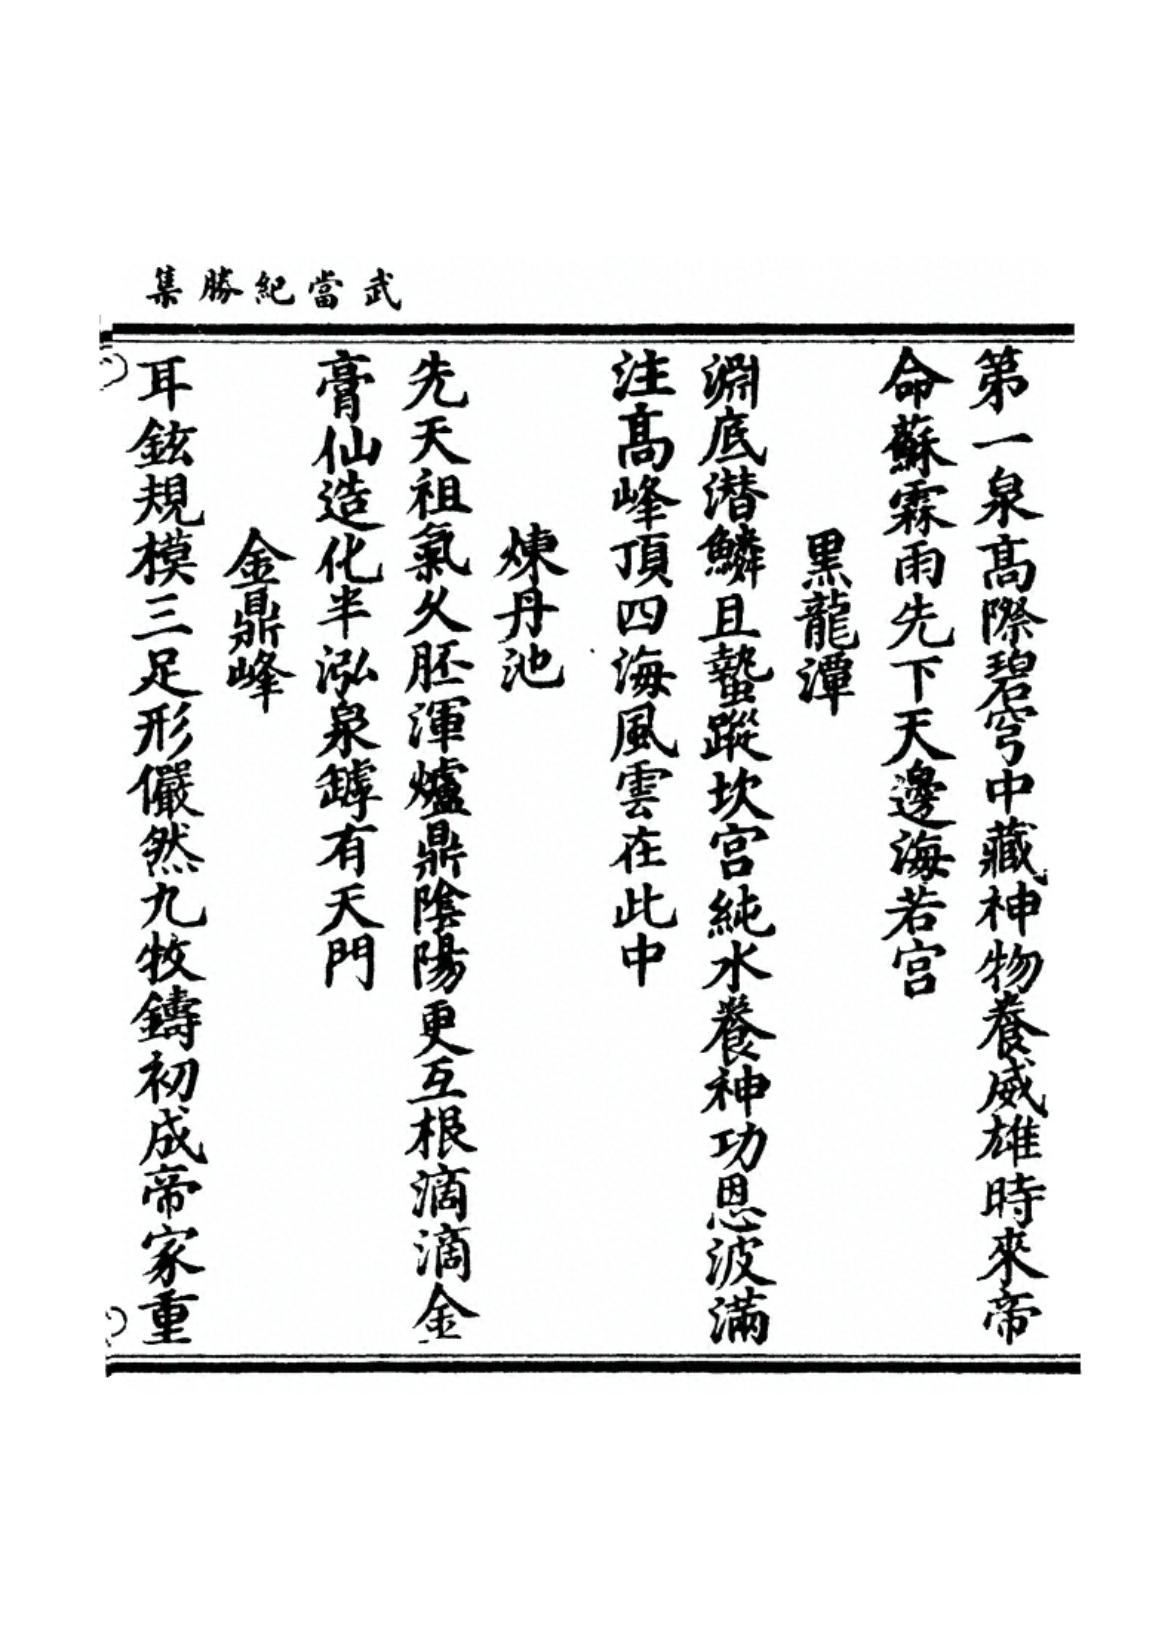 武當紀勝集
第一泉高際碧穹中藏神物養威雄時來帝
命蘇霖雨先下天邊海若宮
黑龍潭
淵底潛鱗且蟄蹤坎宮純水養神功恩波滿
注高峰頂四海風雲在此中
煉丹池
先天祖氣久胚渾爐鼎陰陽更互根滴滴金
膏仙造化半泓泉罅有天門
金鼎峰
耳鉉規模三足形儼然九牧鑄初成帝家重